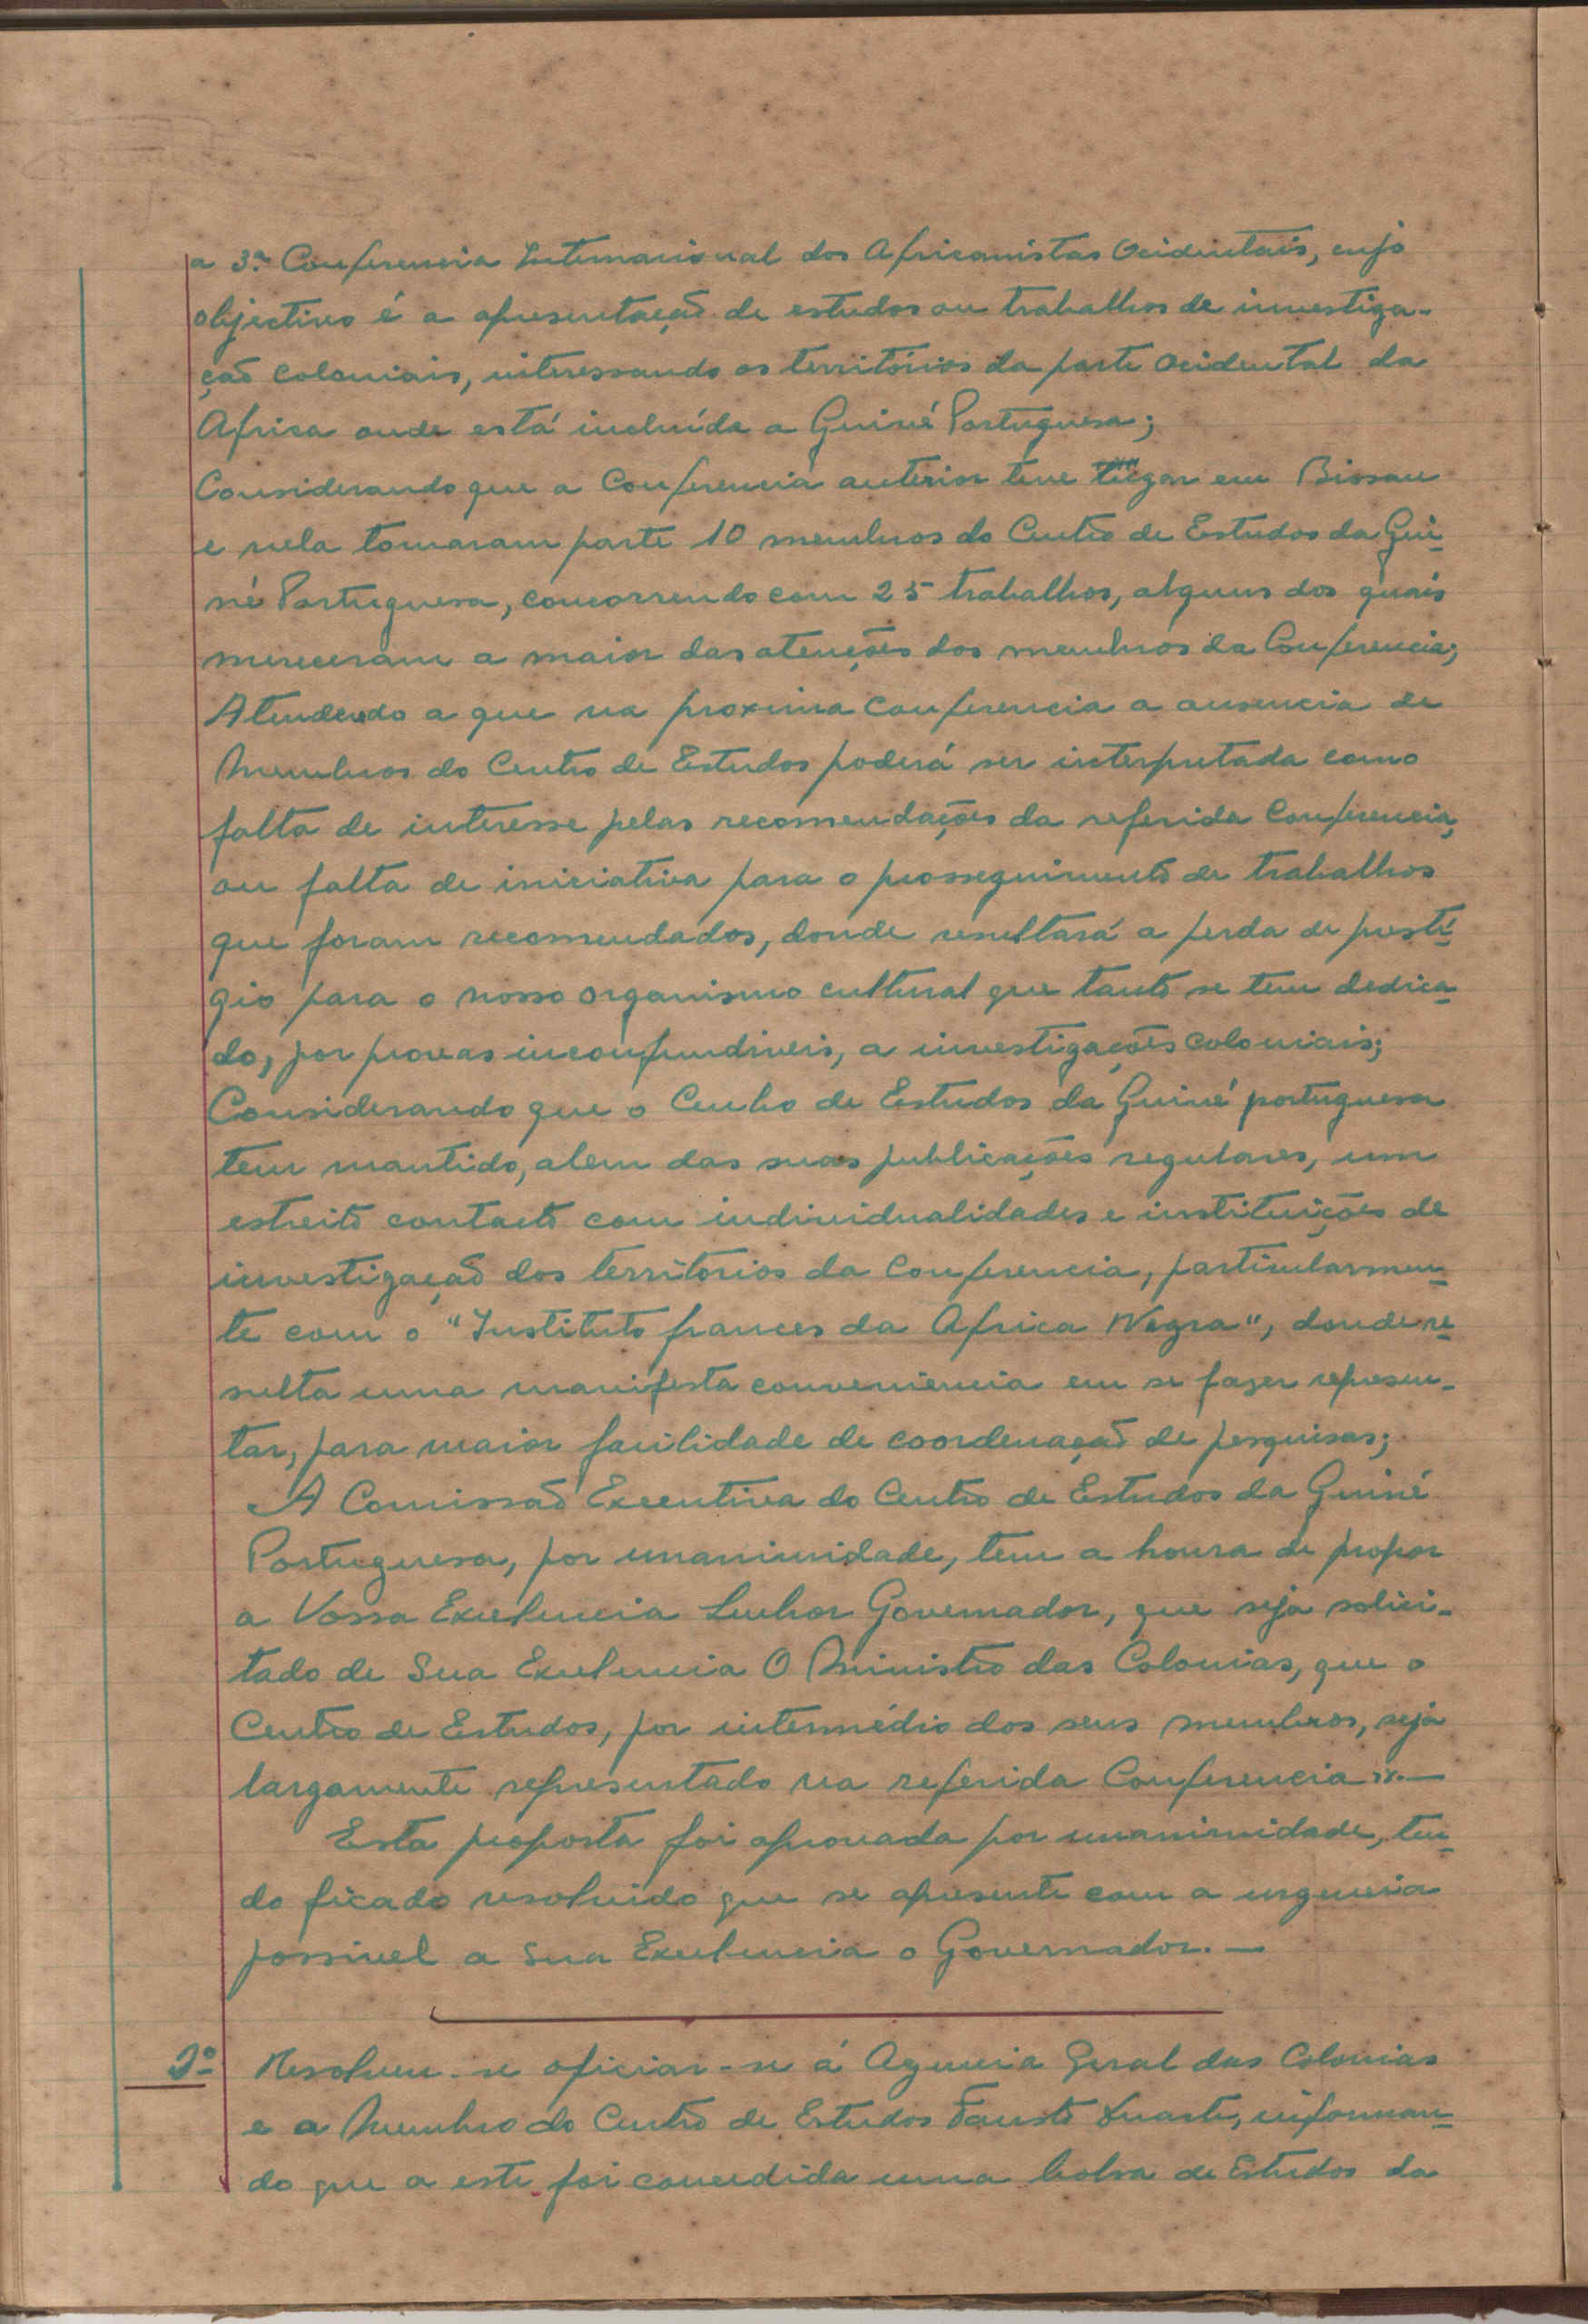 a 3.ª Conferencia Internacional dos Africanistas Ocidentais, cujo
objectivo é a apresentação de estudos ou trabalhos de investiga-
ção coloniais, interessando os territórios da parte ocidental da
Africa onde está incluída a Guiné Portuguesa;
Considerando que a Conferencia anterior teve lugar em Bissau
e nela tomaram parte 10 membros do Centro de Estudos da Gui-
né Portuguesa, concorrendo com 25 trabalhos, alguns dos quais
mereceram a maior das atenções dos membros da Conferencia;
Atendendo a que na proxima conferencia a ausencia de
Membros do Centro de Estudos poderá ser interpretada como
falta de interesse pelas recomendações da referida Conferencia,
ou falta de iniciativa para o prosseguimento de trabalhos
que foram recomendados, donde resultará a perda de prestí-
gio para o nosso organismo cultural que tanto se tem dedica-
do, por provas inconfundiveis, a investigações coloniais;
Considerando que o Centro de Estudos da Guiné portuguesa
tem mantido, alem das suas publicações regulares, um
estreito contacto com individualidades e instituições de
investigação dos territorios da Conferencia, particularmen-
te com o "Instituto frances da Africa Negra", donde re-
sulta uma manifesta conveniencia em se fazer represen-
tar, para maior facilidade de coordenação de pesquisas;
A Comissão Executiva do Centro de Estudos da Guiné
Portuguesa, por unanimidade, tem a honra de propor
a Vossa Excelencia Senhor Governador, que seja solici-
tado de Sua Excelencia O Ministro das Colonias, que o
Centro de Estudos, por intermédio dos seus membros, seja
largamente representado na referida Conferencia».—
Esta proposta foi aprovada por unanimidade, ten-
do ficado resolvido que se apresente com a urgencia
possivel a Sua Excelencia o Governador.—
2º Resolveu-se oficiar-se á Agencia Geral das Colonias
e a Membro do Centro de Estudos Fausto Duarte, informan-
do que a este foi concedida uma bolsa de Estudos da